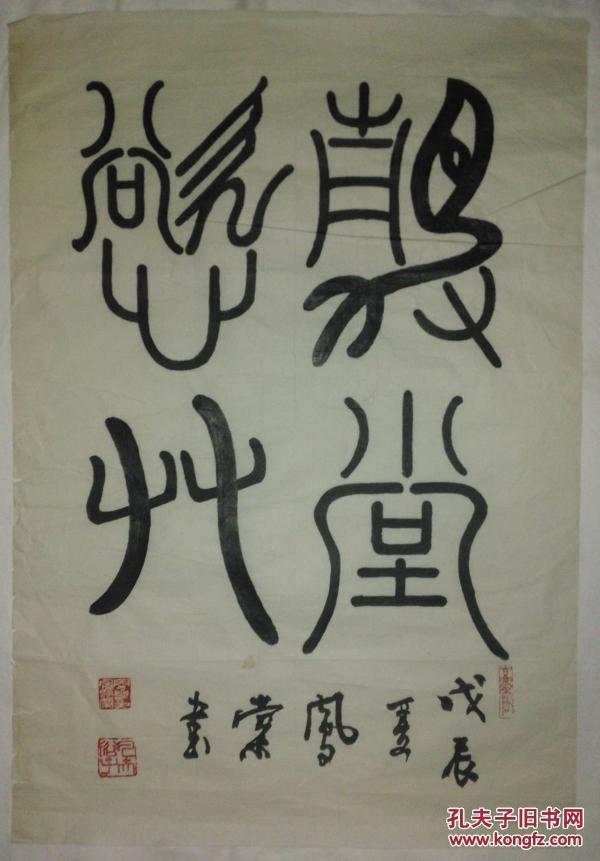 堂
慾艸
戊辰夏鳳棠書
孔夫子旧书网
www.kongfz.com